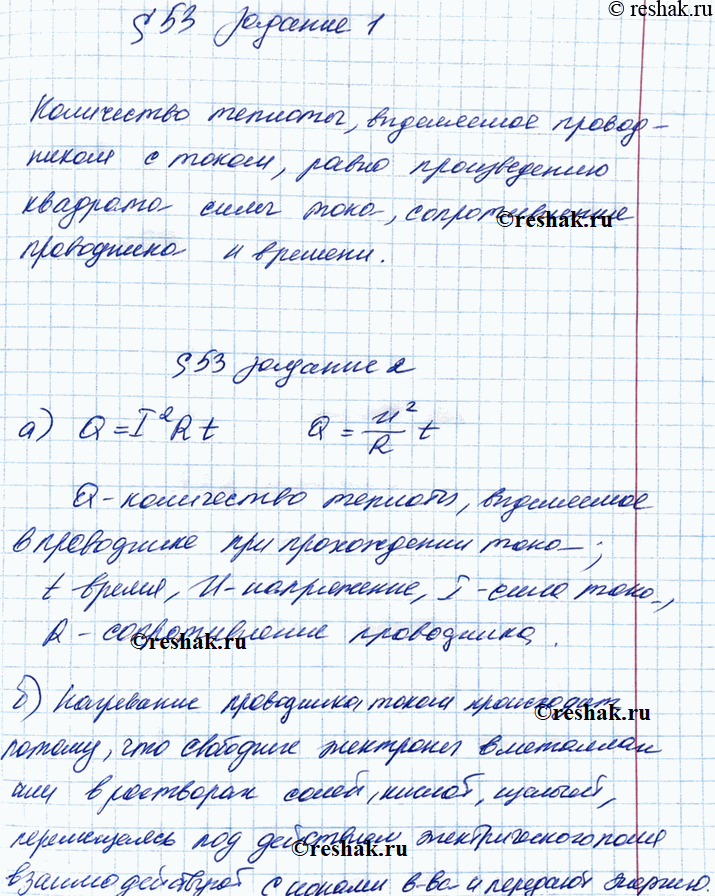 © reshak.ru
§ 53 Задание 1
Количество теплоты, выделяемое провод-
ником с током, равно произведению
квадрата силы тока, сопротивление
© reshak.ru
проводника и времени.
§ 53 Задание 2
а) Q = I²Rt    Q = U²/R t
Q - количество теплоты, выделяемое
в проводнике при прохождении тока;
t время, U - напряжение, I - сила тока,
R - сопротивление проводника.
© reshak.ru
б) Нагревание проводника током происходит
© reshak.ru
потому, что свободные электроны в металлах
или в растворах солей, кислот, щелочей,
перемещаясь под действием электрического поля
взаимодействуют с ионами в-ва и передают энергию